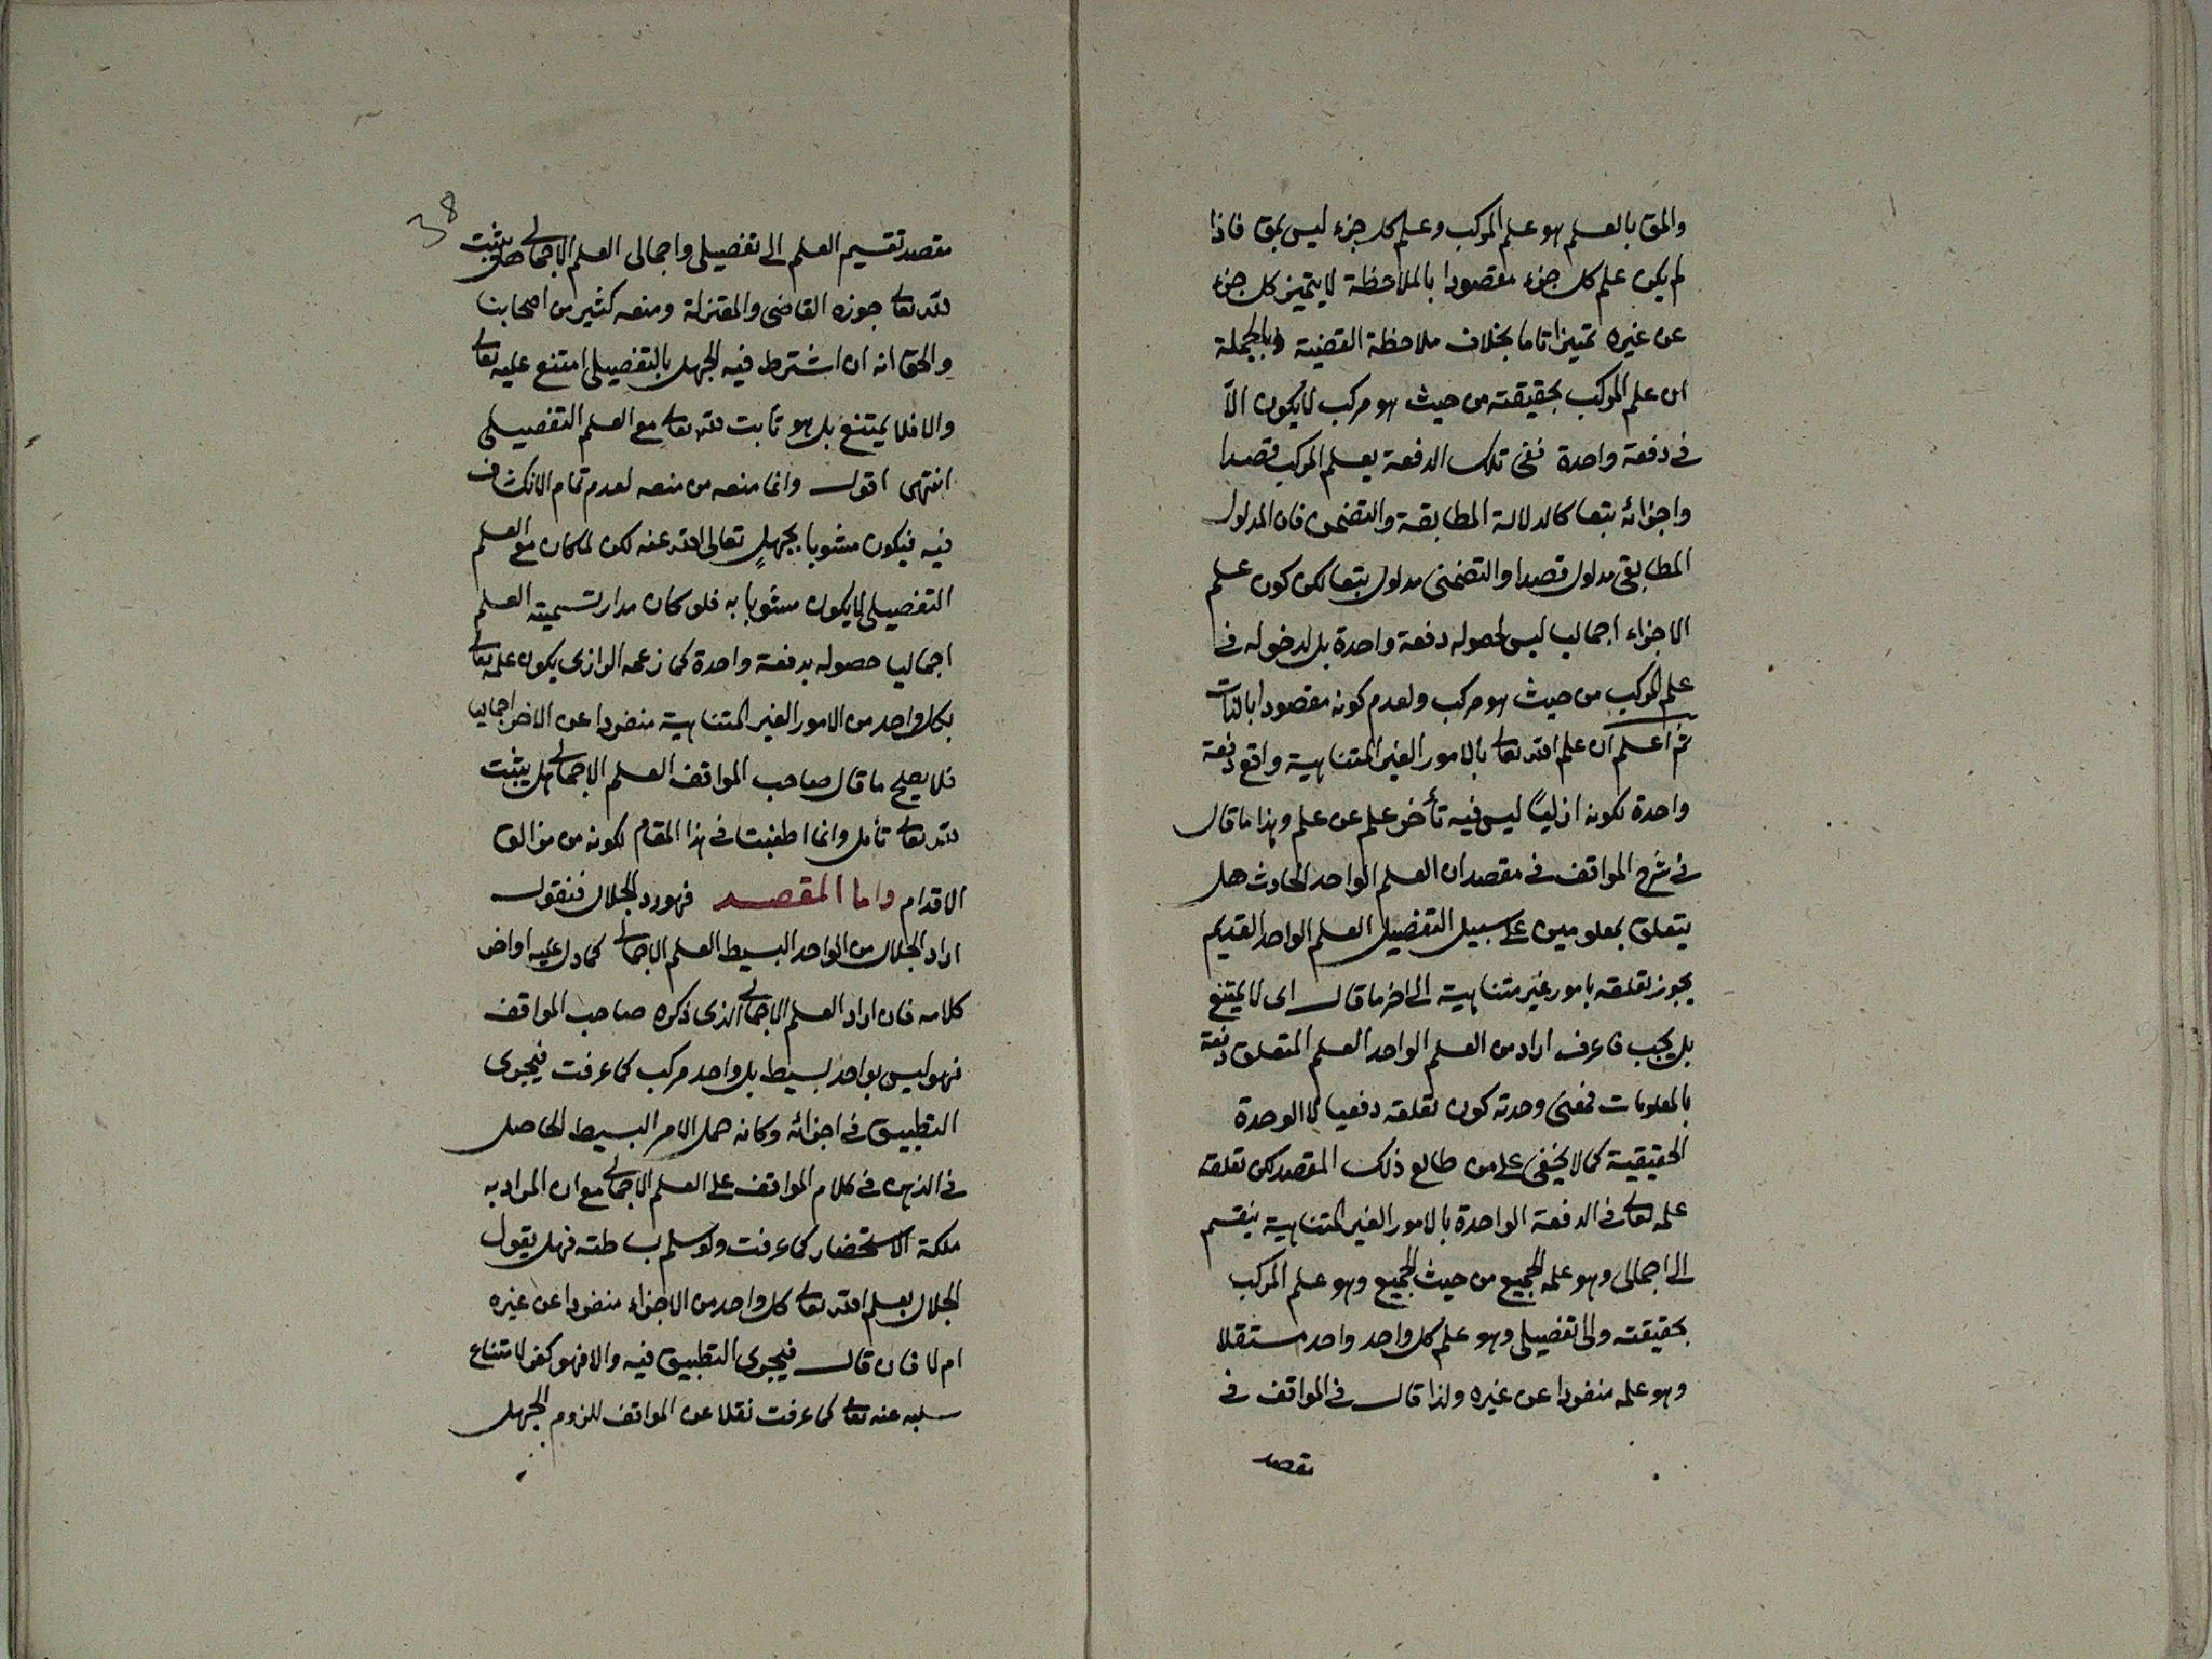 والمق بالعلم هو علم المركب وعلم كل جزء ليس بمق فاذا
لم يكن علم كل جزء مقصودا بالملاحظة لا يتميز كل جزء
عن غيره تميزا تاما بخلاف ملاحظة القضية وبالجملة
ان علم المركب بحقيقته من حيث هو مركب لا يكون الا
فى دفعة واحدة ففى تلك الدفعة يعلم المركب قصدا
واجزائه تبعا كالدلالة المطابقة والتضمن فان المدلول
المطابقى مدلول قصدا والتضمنى مدلول تبعا لكن كون علم
الاجزاء اجماليا ليس لحصوله دفعة واحدة بل لدخوله فى
علم المركب من حيث هو مركب ولعدم كونه مقصودا بالذات
ثم اعلم ان علم الله تعالى بالامور الغير المتناهية واقع دفعة
واحدة لكونه ازليا ليس فيه تأخر علم عن علم وهذا ما قال
فى شرح المواقف فى مقصد ان العلم الواحد الحادث هل
يتعلق بمعلومين على سبيل التفصيل العلم الواحد القديم
يجوز تعلقه بامور غير متناهية الى اخر ما قال اى لا يمتنع
بل يجب فاعرف اراد من العلم الواحد العلم المتعلق دفعة
بالمعلومات فمعنى وحدته كون تعلقه دفعيا لا الوحدة
الحقيقية كما لا يخفى على من طالع ذلك المقصد لكن تعلقه
علمه تعالى فى الدفعة الواحدة بالامور الغير المتناهية ينقسم
الى اجمالى وهو علمه الجميع من حيث الجميع وهو علم المركب
بحقيقته والى تفصيلى وهو علم كل واحد واحد مستقلا
وهو علمه منفردا عن غيره ولذا قال فى المواقف فى
مقصد
38
مقصد تقسيم العلم الى تفصيلى واجمالى العلم الاجمالى هل يثبت
لله تعالى جوزه القاضى والمعتزلة ومنعه كثير من اصحابنا
والحق انه ان اشترط فيه الجهل بالتفصيلى امتنع عليه تعالى
والا فلا يمتنع بل هو ثابت لله تعالى مع العلم التفصيلى
انتهى اقول وانما منعه من منعه لعدم تمام الانكشاف
فيه فيكون مشوبا بجهل تعالى الله عنه لكن لما كان مع العلم
التفصيلى لا يكون مشوبا به فلو كان مدار تسمية العلم
اجماليا حصوله بدفعة واحدة كما زعمه الرازى يكون علمه تعالى
بكل واحد من الامور الغير المتناهية منفردا عن الاخر اجماليا
فلا يصح ما قال صاحب المواقف العلم الاجمالى هل يثبت
لله تعالى تأمل وانما اطنبت فى هذا المقام لكونه من مزالق
الاقدام واما المقصد فهو رد الجلال فنقول
اراد الجلال من الواحد البسيط العلم الاجمالى كما دل عليه اواخر
كلامه فان اراد العلم الاجمالى الذى ذكره صاحب المواقف
فهو ليس بواحد بسيط بل واحد مركب كما عرفت فيجرى
التطبيق فى اجزائه وكانه حمل الامر البسيط الحاصل
فى الذهن فى كلام المواقف على العلم الاجمالى مع ان المراد به
ملكة الاستحضار كما عرفت ولو سلم بساطته فهل يقول
الجلال بعلم الله تعالى كل واحد من الاجزاء منفردا عن غيره
ام لا فان قال فيجرى التطبيق فيه والا فهو كفر لامتناع
سلبه عنه تعالى كما عرفت نقلا عن المواقف للزوم الجهل